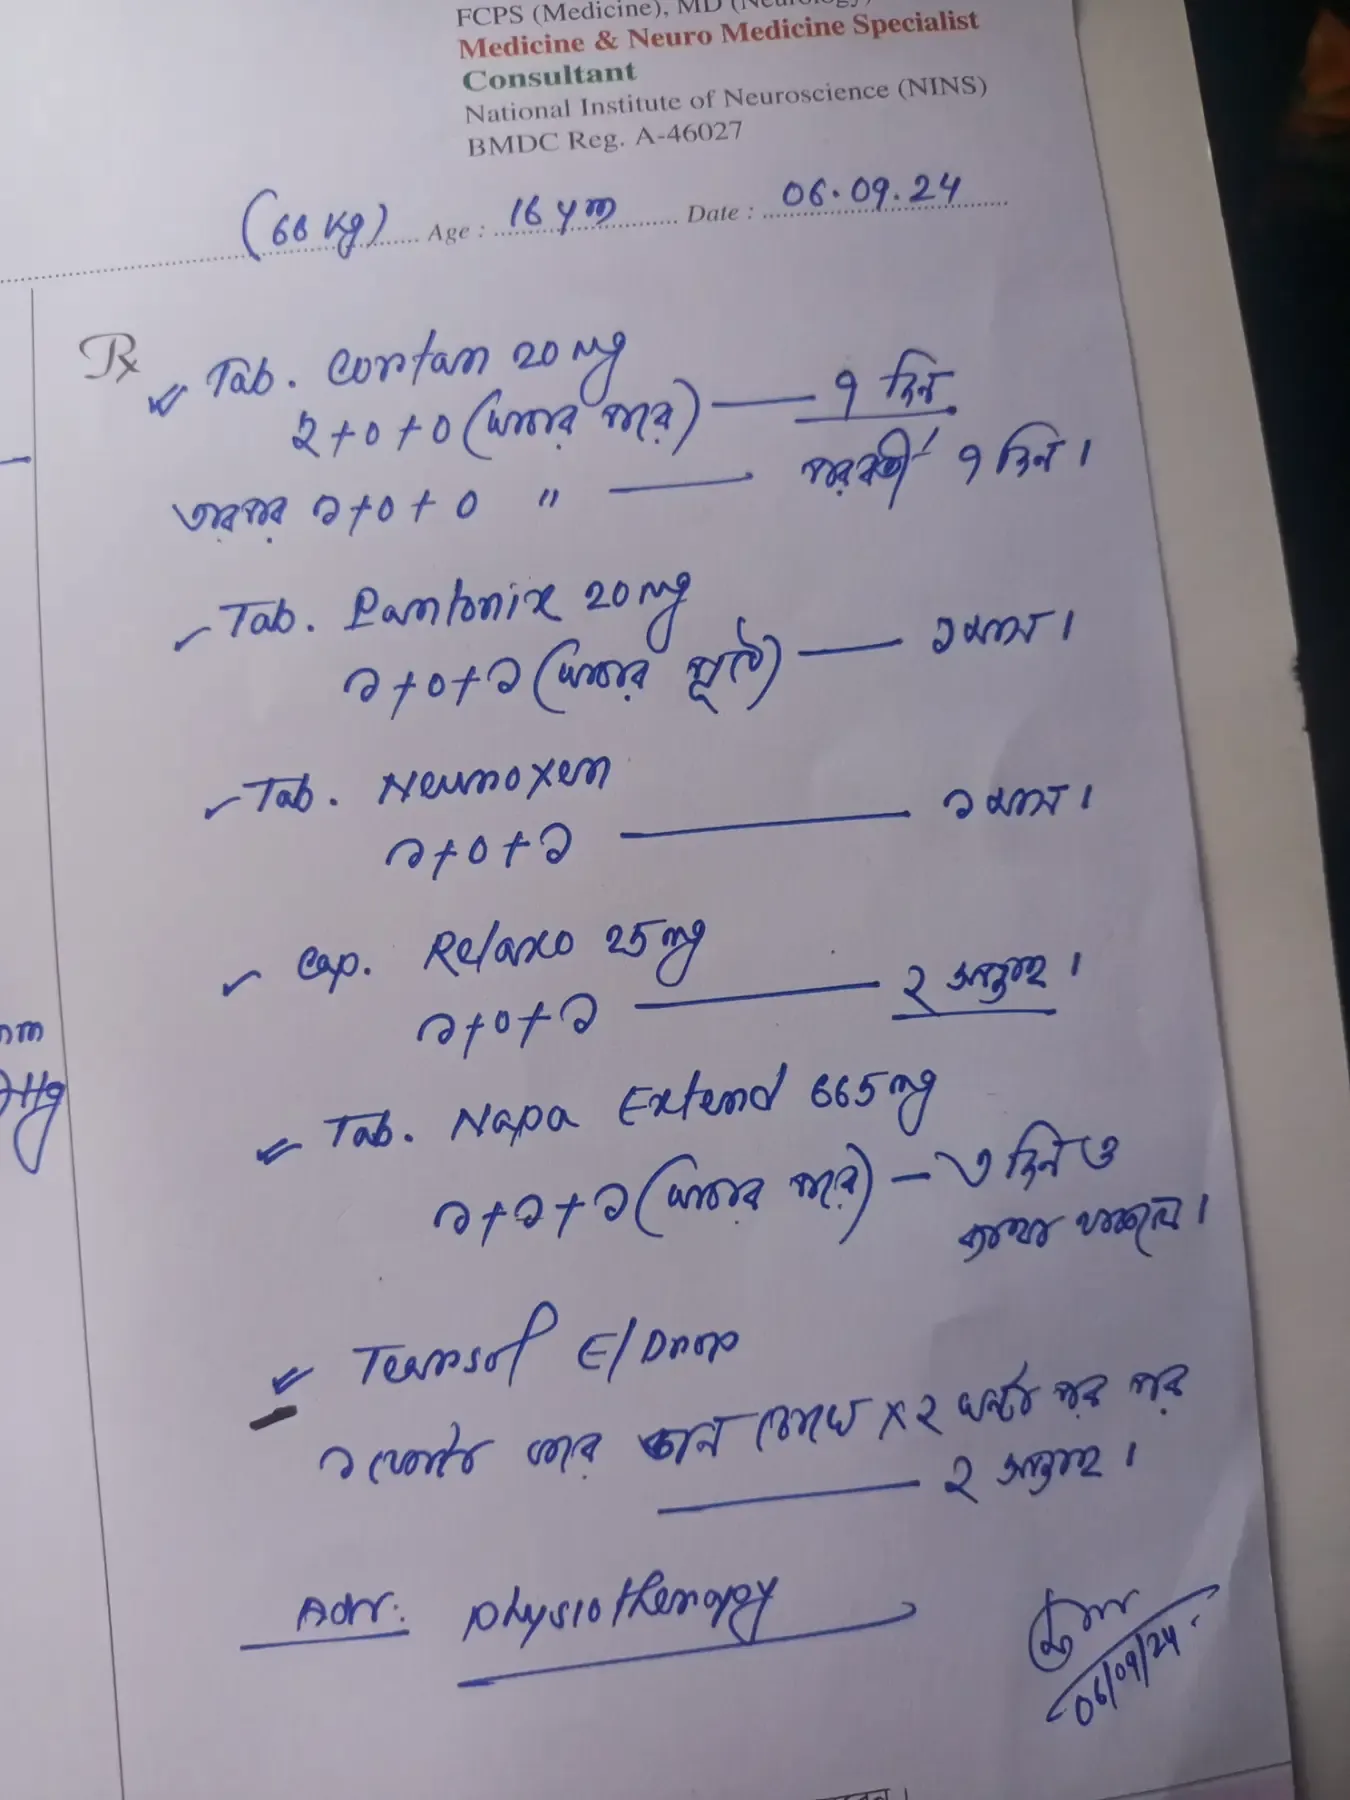 FCPS (Medicine), MD (Neurology)
Medicine & Neuro Medicine Specialist
Consultant
National Institute of Neuroscience (NINS)
BMDC Reg. A-46027
(66 kg) Age : 16 yrs Date : 06.09.24
Rx
Tab. Cortan 20 mg
২+০+০ (খাবার পরে) — ৭ দিন
তারপর ১+০+০ " — পরবর্তী ৭ দিন।
Tab. Pantonix 20 mg
১+০+১ (খাবার পূর্বে) — ১ মাস।
Tab. Neuroxen
১+০+১ — ১ মাস।
Cap. Relaxo 25 mg
১+০+১ — ২ সপ্তাহ।
Tab. Napa Extend 665 mg
১+১+১ (খাবার পরে) — ৩ দিন ও
ব্যথা থাকলে।
Tearsol E/Drop
১ ফোটা করে ডান চোখে x ২ ঘন্টা পর পর
— ২ সপ্তাহ।
Adv: Physiotherapy
06/09/24
mm
Hg